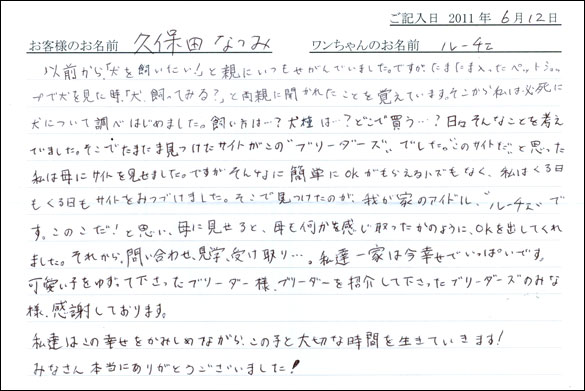 ご記入日 2011 年 6 月 12 日
お客様のお名前 久保田 なつみ ワンちゃんのお名前 ルーチェ
以前から「犬を飼いたい!」と親にいつもせがんでいました。ですが、たまたま入ったペットショッ
プで犬を見た時、「犬、飼ってみる?」と両親に聞かれたことを覚えています。そこから私は必死に
犬について調べはじめました。飼い方は…?犬種は…?どこで買う…?日々そんなことを考え
ていました。そこでたまたま見つけたサイトがこの"ブリーダーズ"でした。"このサイトだ"と思った
私は母にサイトを見せました。ですがそんなに簡単にOKがもらえるハズもなく、私はくる日
もくる日もサイトをみつづけました。そこで見つけたのが、我が家のアイドル、"ルーチェ"で
す。このこだ!と思い、母に見せると、母も何かを感じ取ったかのように、OKを出してくれ
ました。それから、問い合わせ、見学、受け取り…。私達一家は今幸せでいっぱいです。
可愛い子をゆずって下さったブリーダー様、ブリーダーを紹介して下さったブリーダーズのみな
様、感謝しております。
私達はこの幸せをかみしめながら、この子と大切な時間を生きていきます!
みなさん本当にありがとうございました!